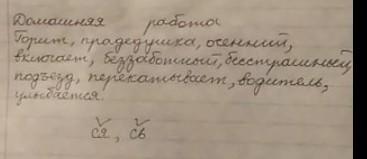 Домашняя работа
Горит, прадедушка, осенний,
включает, беззаботный, бесстрашный,
подъезд, перекатывает, водитель,
улыбается.
ся, сь